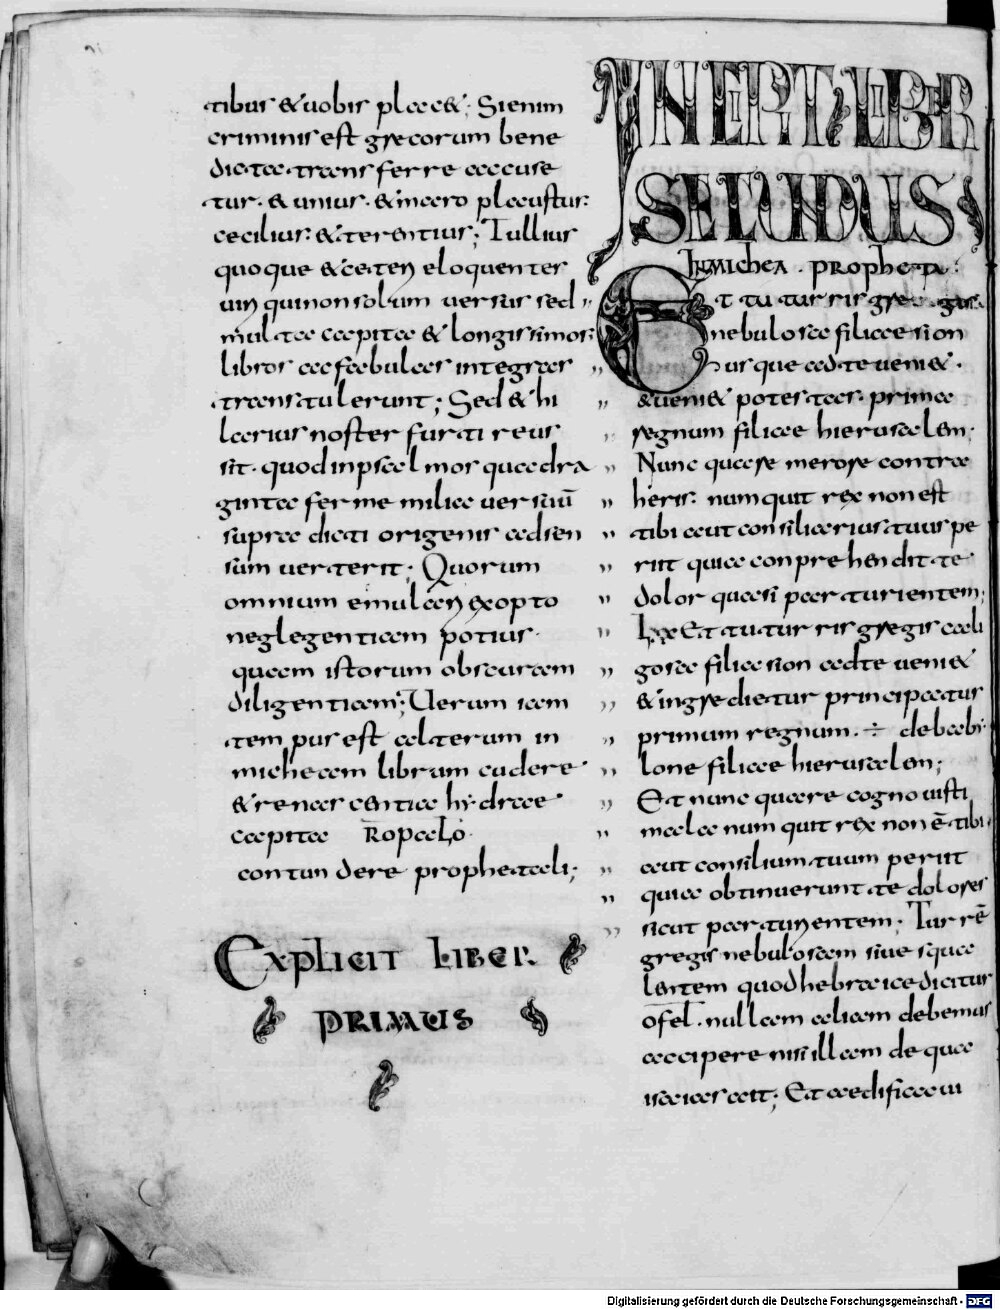 tibus & uobis place&; Si enim
criminis est grecorum bene
dicta transferre accuse
tur. & unius. & in aero plaustus:
cecilius: & terentius; Tullius
quoque & ceteri eloquenter
uiri qui non solum uersus sed
multa capita & longissimos
libros ac fabulas integras
transtulerunt; Sed & hi
larius noster furti reus
sit. quod in psalmos quadra
ginta ferme milia uersuū
supra dicti origenis ad sen
sum uerterit; Quorum
omnium emulari exopto
neglegentiam potius.
quam istorum obscuram
diligentiam; Uerum iam
tempus est alterum in
micheam librum cudere
& renascentia hydrae
capita
contundere prophetali;
Explicit liber
primus
INCIPIT LIBER
SECUNDUS
In Michea . propheta:
Et tu turris gregis
nebulosa filia sion
usque ad te ueni&.
& ueni& potestas. prima
regnum filiae hierusalem;
Nunc quare merore contra
heris: numquit rex non est
tibi aut consiliarius tuus pe
riit quia conprehendit te
dolor quasi parturientem;
Lxx Et tu turris gregis cali
gosa filia sion ad te ueni&
& ingredietur principatus
primum regnum. ÷ de babi
lone filiae hierusalem;
Et nunc quare cognouisti
mala numquit rex non ē tibi
aut consilium tuum periit
quia obtinuerunt te dolores
sicut parturientem; Turrē
gregis nebulosam siue squa
lentem quod hebraice dicitur
ofel. nullam aliam debemus
accipere nisi illam de qua
isaias ait; Et aedificaui
Digitalisierung gefördert durch die Deutsche Forschungsgemeinschaft - DFG